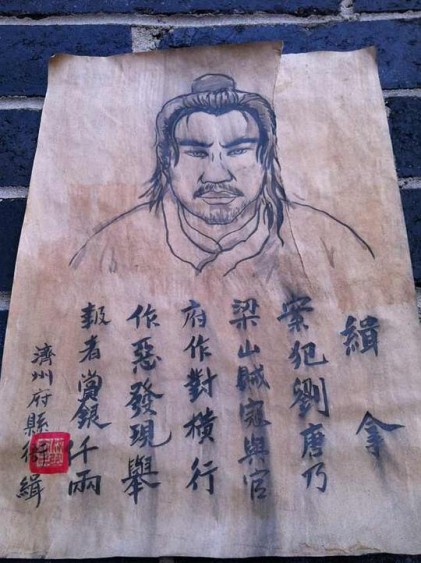 緝拿
案犯劉唐乃
梁山賊寇與官
府作對橫行
作惡發現舉
報者賞銀仟兩
濟州府縣衙緝